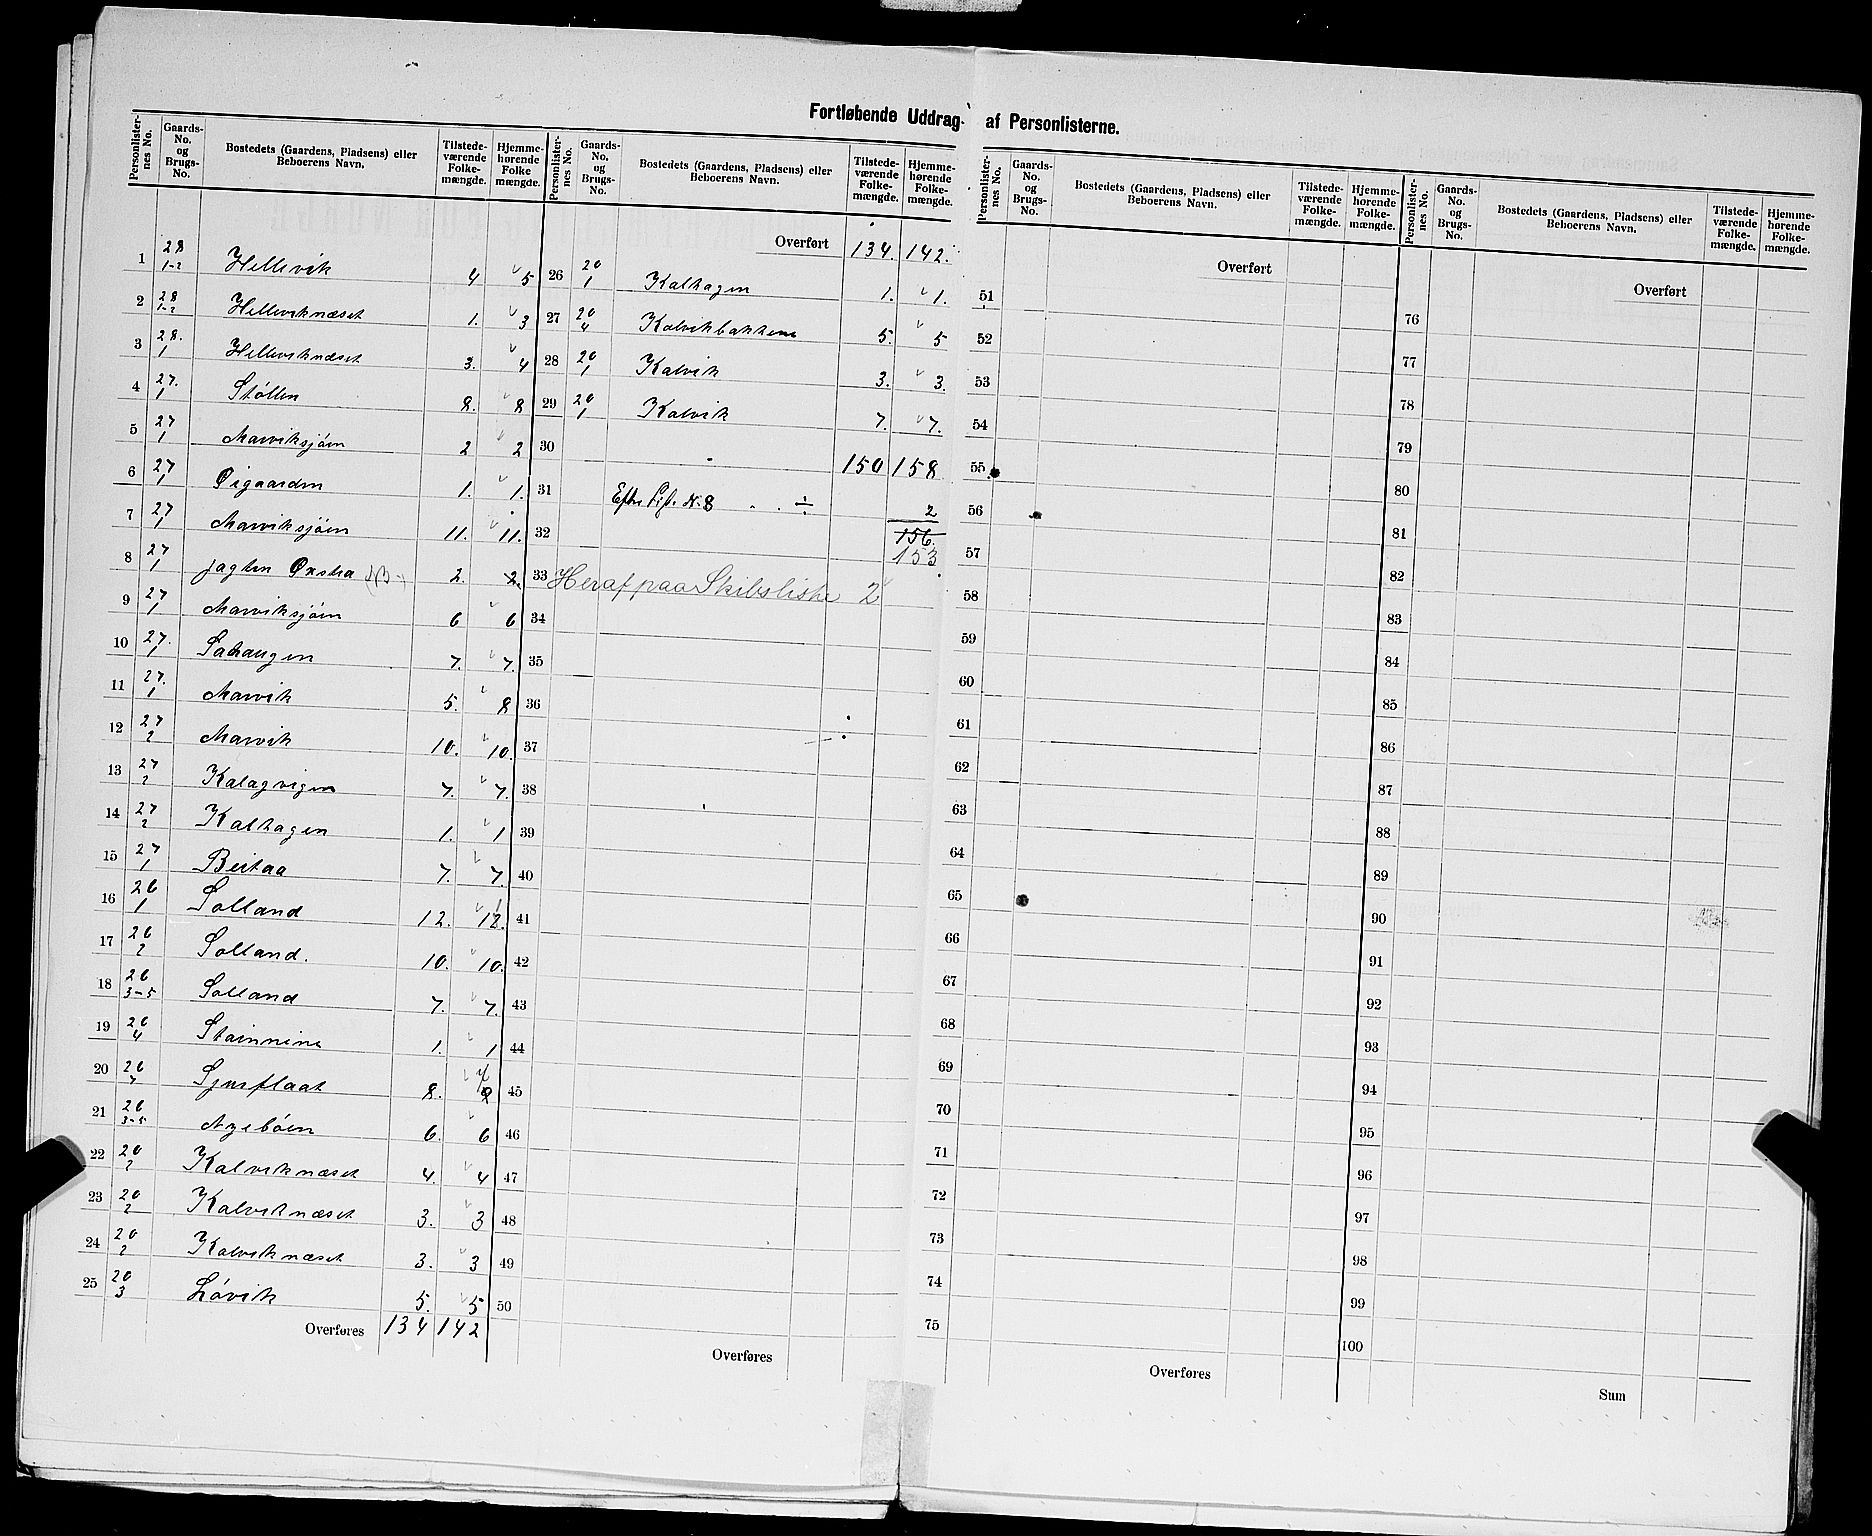 Fortløbende Uddrag af Personlisterne.
Personlisternes No. Gaards-No. og Brugs-No. Bostedets (Gaardens, Pladsens) eller Beboerens Navn. Tilstedeværende Folkemængde. Hjemmehørende Folkemængde.
1 28 1-2 Hellevik 4 5
2 28 1-2 Helleviknæset 1. 3
3 28. 1 Helleviknæset 3. 4
4 27. 1 Stöllen 8. 8
5 27 1 Marviksjöen 2 2
6 27 1 Øigaarden 1. 1.
7 27 1 Marviksjöen 11. 11.
8 27 1 Jagten Oxstra 2. 2.
9 27 1 Marviksjöen 6 6
10 27. 1 Sahaugen 7. 7.
11 27. 1 Marvik 5. 8
12 27 2 Marvik 10. 10.
13 27 2 Kalagvigen 7. 7.
14 27 2 Kalhagen 1. 1
15 27 1 Beitaa 7. 7.
16 26 1 Solland 12. 12.
17 26 2 Solland. 10. 10.
18 26 3-5 Solland 7. 7.
19 26 4 1. 1
20 26 7 8.
21 26 3-5 6. 6
22 20 2 Kalviknæset 4. 4
23 20 2 Kalviknæset 3. 3
24 20 2 Kalviknæset 3. 3
25 20 3 Lövik 5. 5
Overføres 134 142
Personlisternes No. Gaards-No. og Brugs-No. Bostedets (Gaardens, Pladsens) eller Beboerens Navn. Tilstedeværende Folkemængde. Hjemmehørende Folkemængde.
Overført 134. 142.
26 20 1 Kalhagen 1. 1.
27 20 4 Kalvikbakkene 5. 5
28 20 1 Kalvik 3. 3.
29 20 1 Kalvik 7. 7.
30 150 158
31 Efter List. N. 8 ÷ 2
32 156.
153
33 Heraf paa Skibsliste 2
34
35
36
37
38
39
40
41
42
43
44
45
46
47
48
49
50
Overføres
Personlisternes No. Gaards-No. og Brugs-No. Bostedets (Gaardens, Pladsens) eller Beboerens Navn. Tilstedeværende Folkemængde. Hjemmehørende Folkemængde.
Overført
51
52
53
54
55
56
57
58
59
60
61
62
63
64
65
66
67
68
69
70
71
72
73
74
75
Overføres
Personlisternes No. Gaards-No. og Brugs-No. Bostedets (Gaardens, Pladsens) eller Beboerens Navn. Tilstedeværende Folkemængde. Hjemmehørende Folkemængde.
Overført
76
77
78
79
80
81
82
83
84
85
86
87
88
89
90
91
92
93
94
95
96
97
98
99
100
Sum